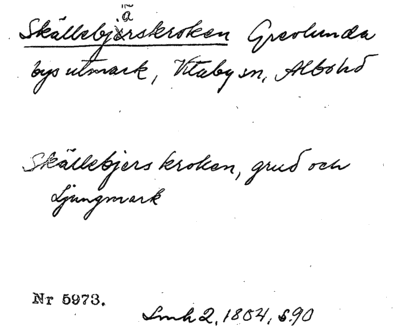 Skällebjärskroken Grevlunda
bys utmark, Vitaby sn, Albo hd
Skällebjers kroken, grud och
Ljungmark
Nr 5973.
Lmh 2, 1804, s. 90